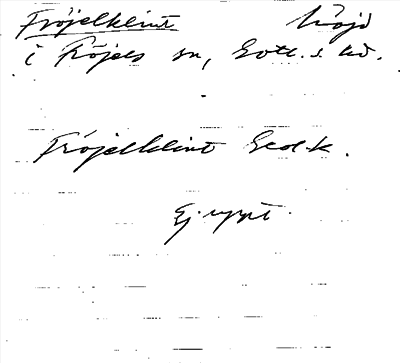 Fröjelklint höjd
i Fröjels sn, Gotl. s. hd.
Fröjelklint Geol.k.
Ej uppt.